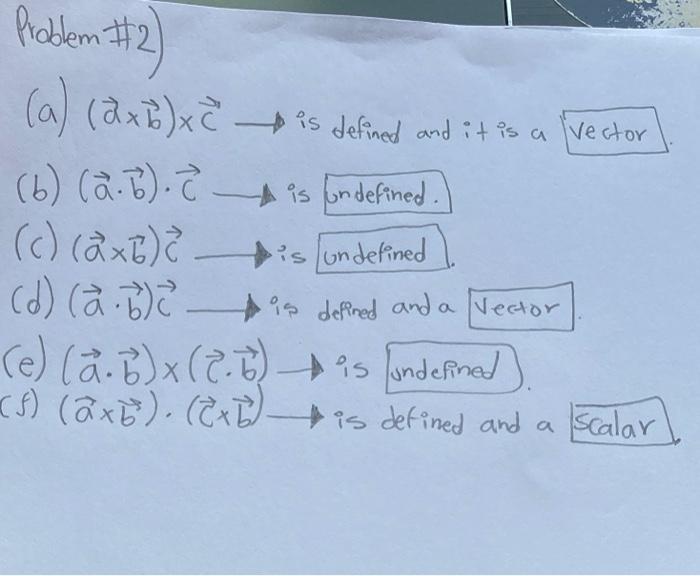 Problem #2)
(a) (a⃗×b⃗)×c⃗ → is defined and it is a vector.
(b) (a⃗.b⃗).c⃗ → is undefined.
(c) (a⃗×b⃗)c⃗ → is undefined.
(d) (a⃗.b⃗)c⃗ → is defined and a vector.
(e) (a⃗.b⃗)×(c⃗.b⃗) → is undefined.
(f) (a⃗×b⃗).(c⃗×b⃗) → is defined and a scalar.